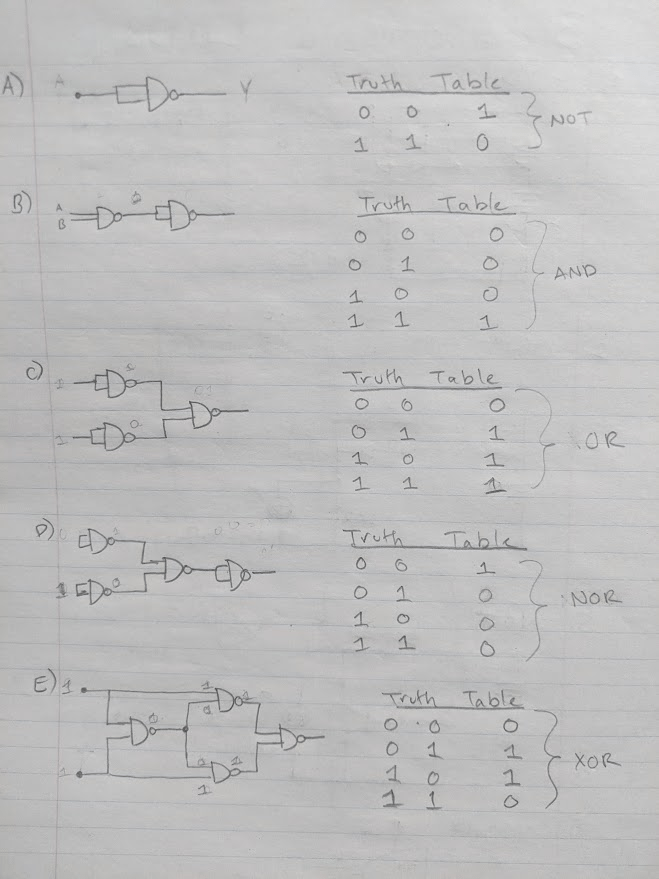 A) A Y Truth Table
0 0 1
1 1 0
NOT
B) A B 0 Truth Table
0 0 0
0 1 0
1 0 0
1 1 1
AND
C) 1 1 0 Truth Table
0 0 0
0 1 1
1 0 1
1 1 1
OR
D) 1 0 Truth Table
0 0 1
0 1 0
1 0 0
1 1 0
NOR
E) 1 1 0 1 0 1 0 1 1 Truth Table
0 0 0
0 1 1
1 0 1
1 1 0
XOR